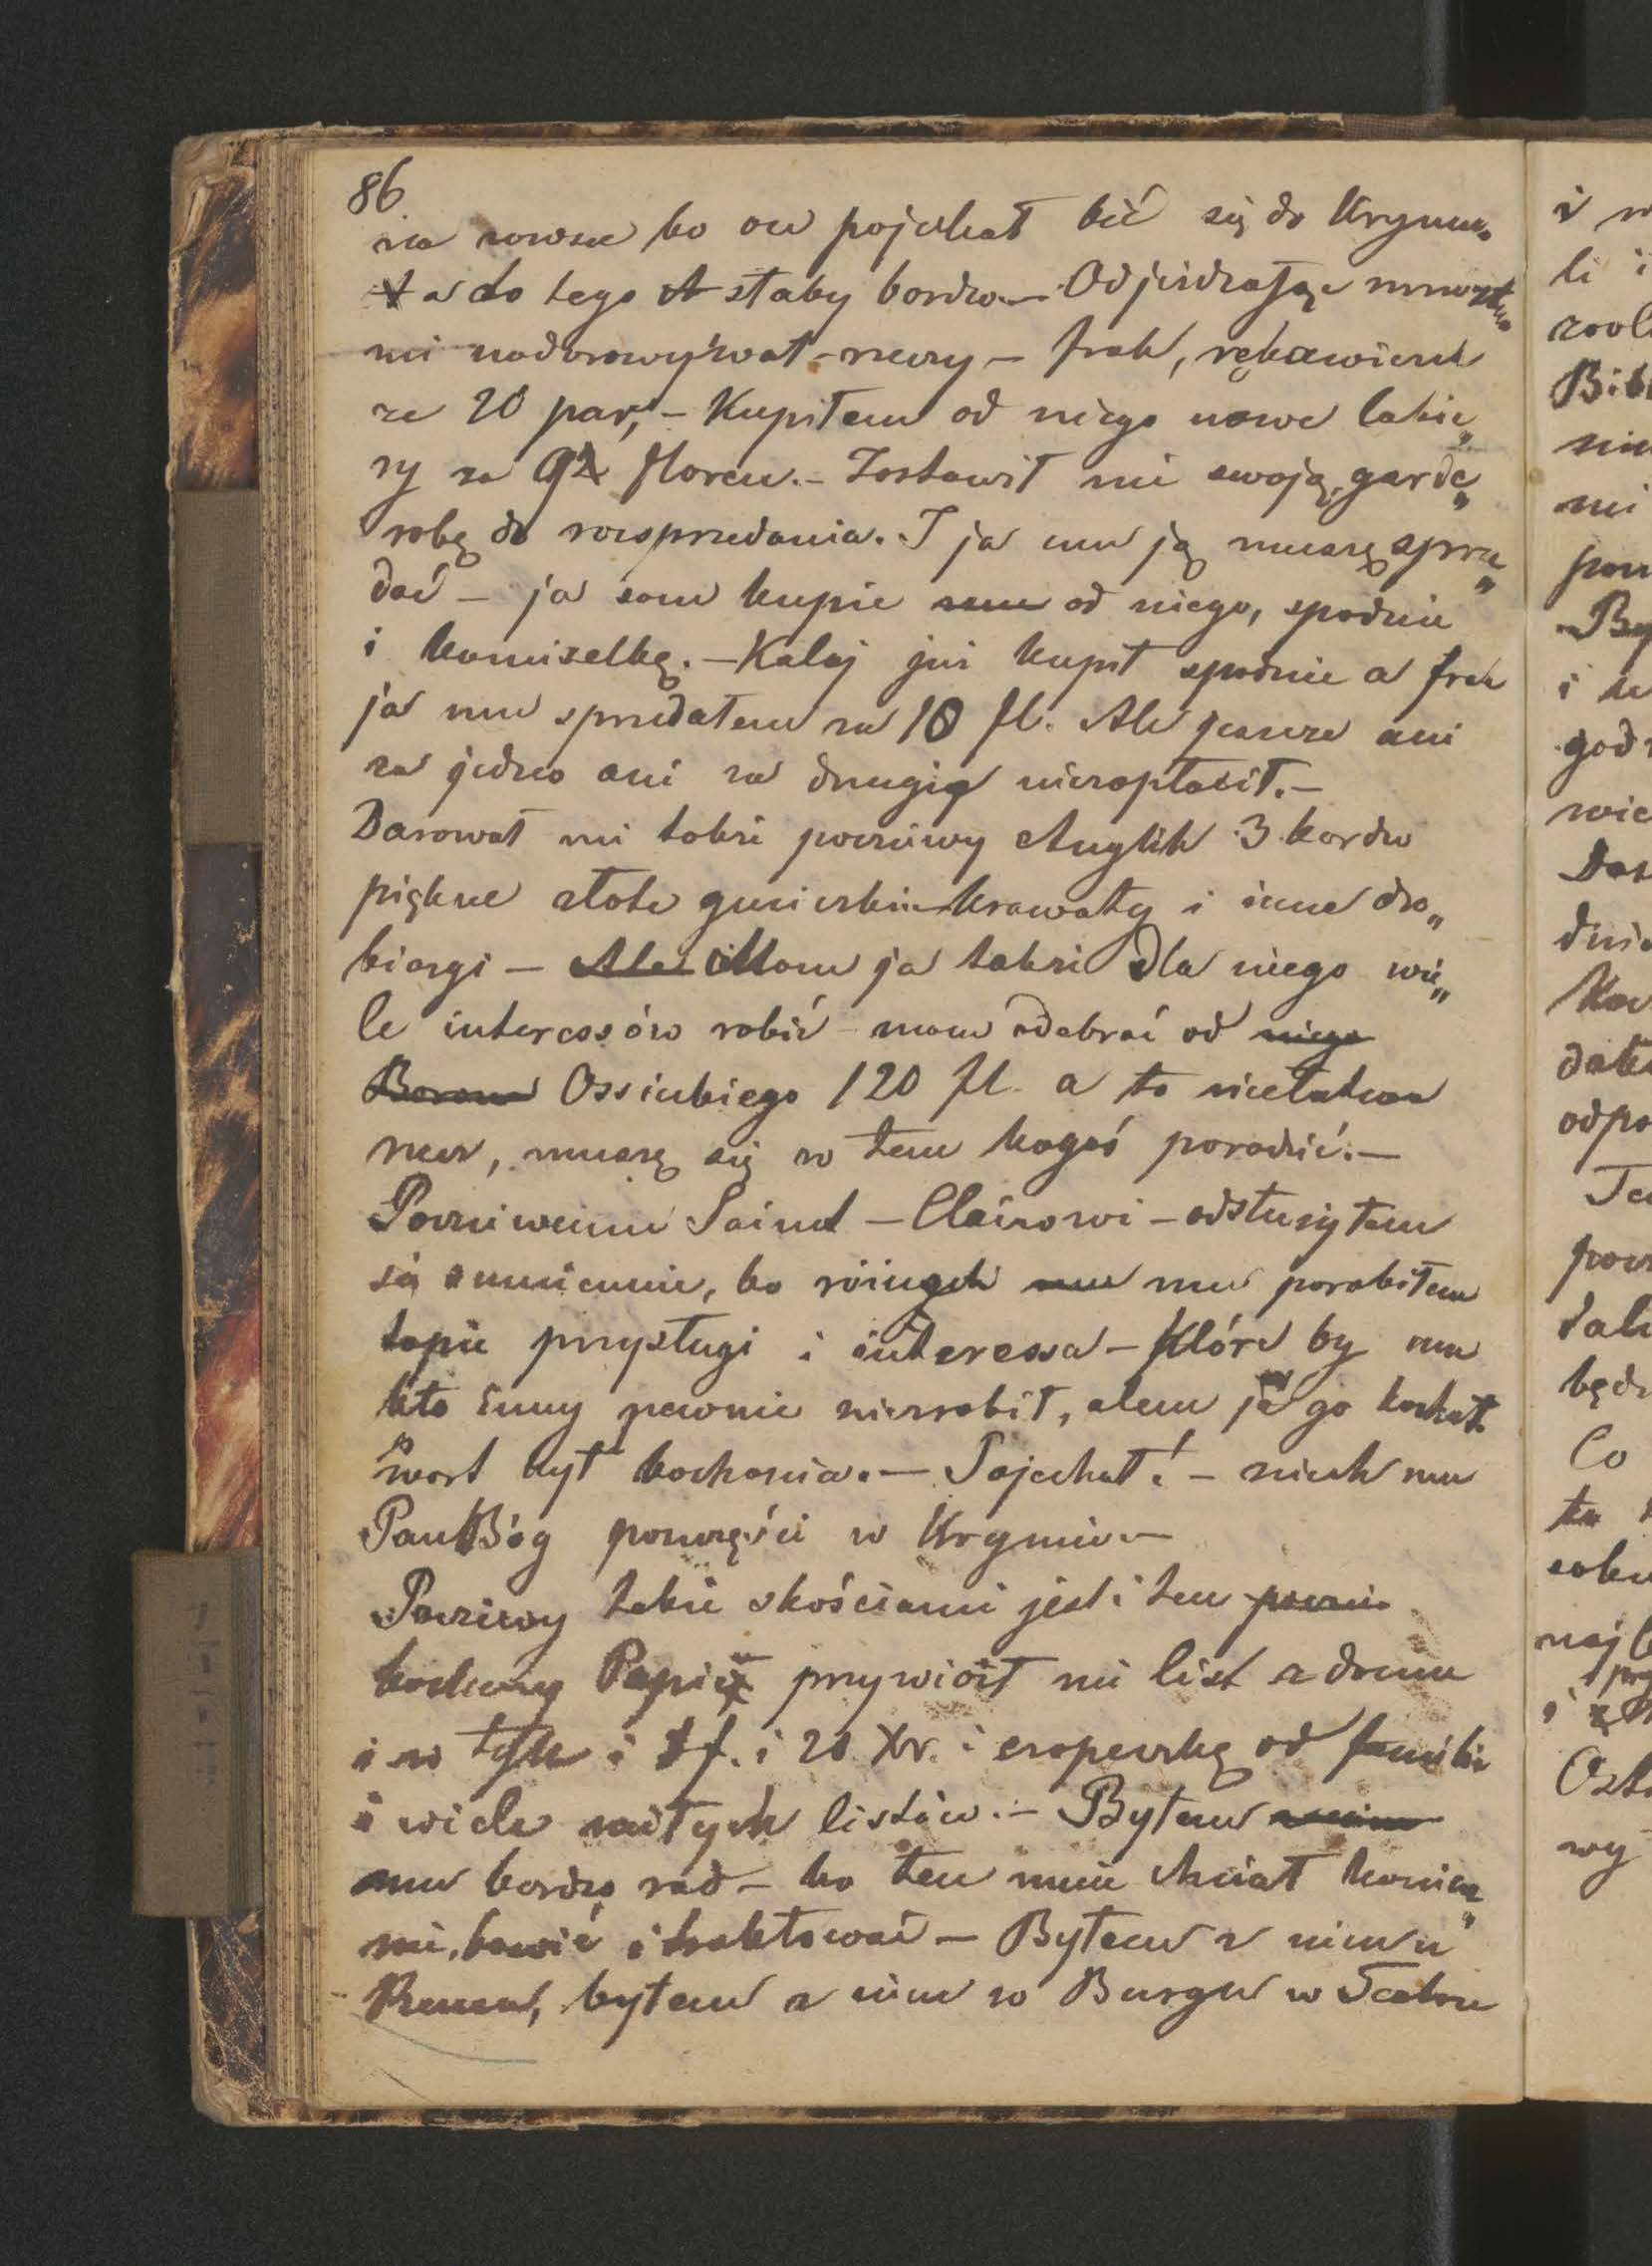 86.
na zawsze bo on pojechał bić się do Krymu.
a do tego słaby bardzo. – Odjeżdżając mnóstwo
mi nadarowywał rzeczy – frak, rękawiczek
ze 20 par, – Kupiłem od niego nowe lakie„
ry za floren. – Zostawił mi swoją garde„
robę do rozsprzedania. I ja mu ją muszę sprze„
dać – ja sam kupię od niego, spodnie
i kamizelkę. – Kalaj już kupił spodnie a frak
ja mu sprzedałem za 10 fl. Ale jeszcze ani
za jedno ani za drugie niezapłacił. –
Darował mi także poczciwy Anglik 3 bardzo
piękne złote guziczki krawaty i inne dro„
biazgi – Ale Mam ja także dla niego wie„
le interessów robić mam odebrać od niego
Ossickiego 120 fl. a to niełatwa
rzecz, muszę się w tem kogoś poradzić. –
Poczciwemu Saint – Clairowi – odsłużyłem
się sumiennie, bo różnych mu porobiłem
tapie przysługi i interessa – które by mu
kto inny pewnie niezrobił, alem ja go kochał
wart był kochania. – Pojechał! – niech mu
Pan Bóg poszczęści w Krymie –
Poczciwy także z kościami jest i ten
kochany Papież przywiózł mi list z domu
i w tych i f. i 20 Xr. i czapeczkę od familii
i wiele miłych listów. – Byłem
mu bardzo rad – bo ten mnie chciał koniecz„
nie bawić i traktować – Byłem z nim u
byłem z nim w Burgu w Teatru